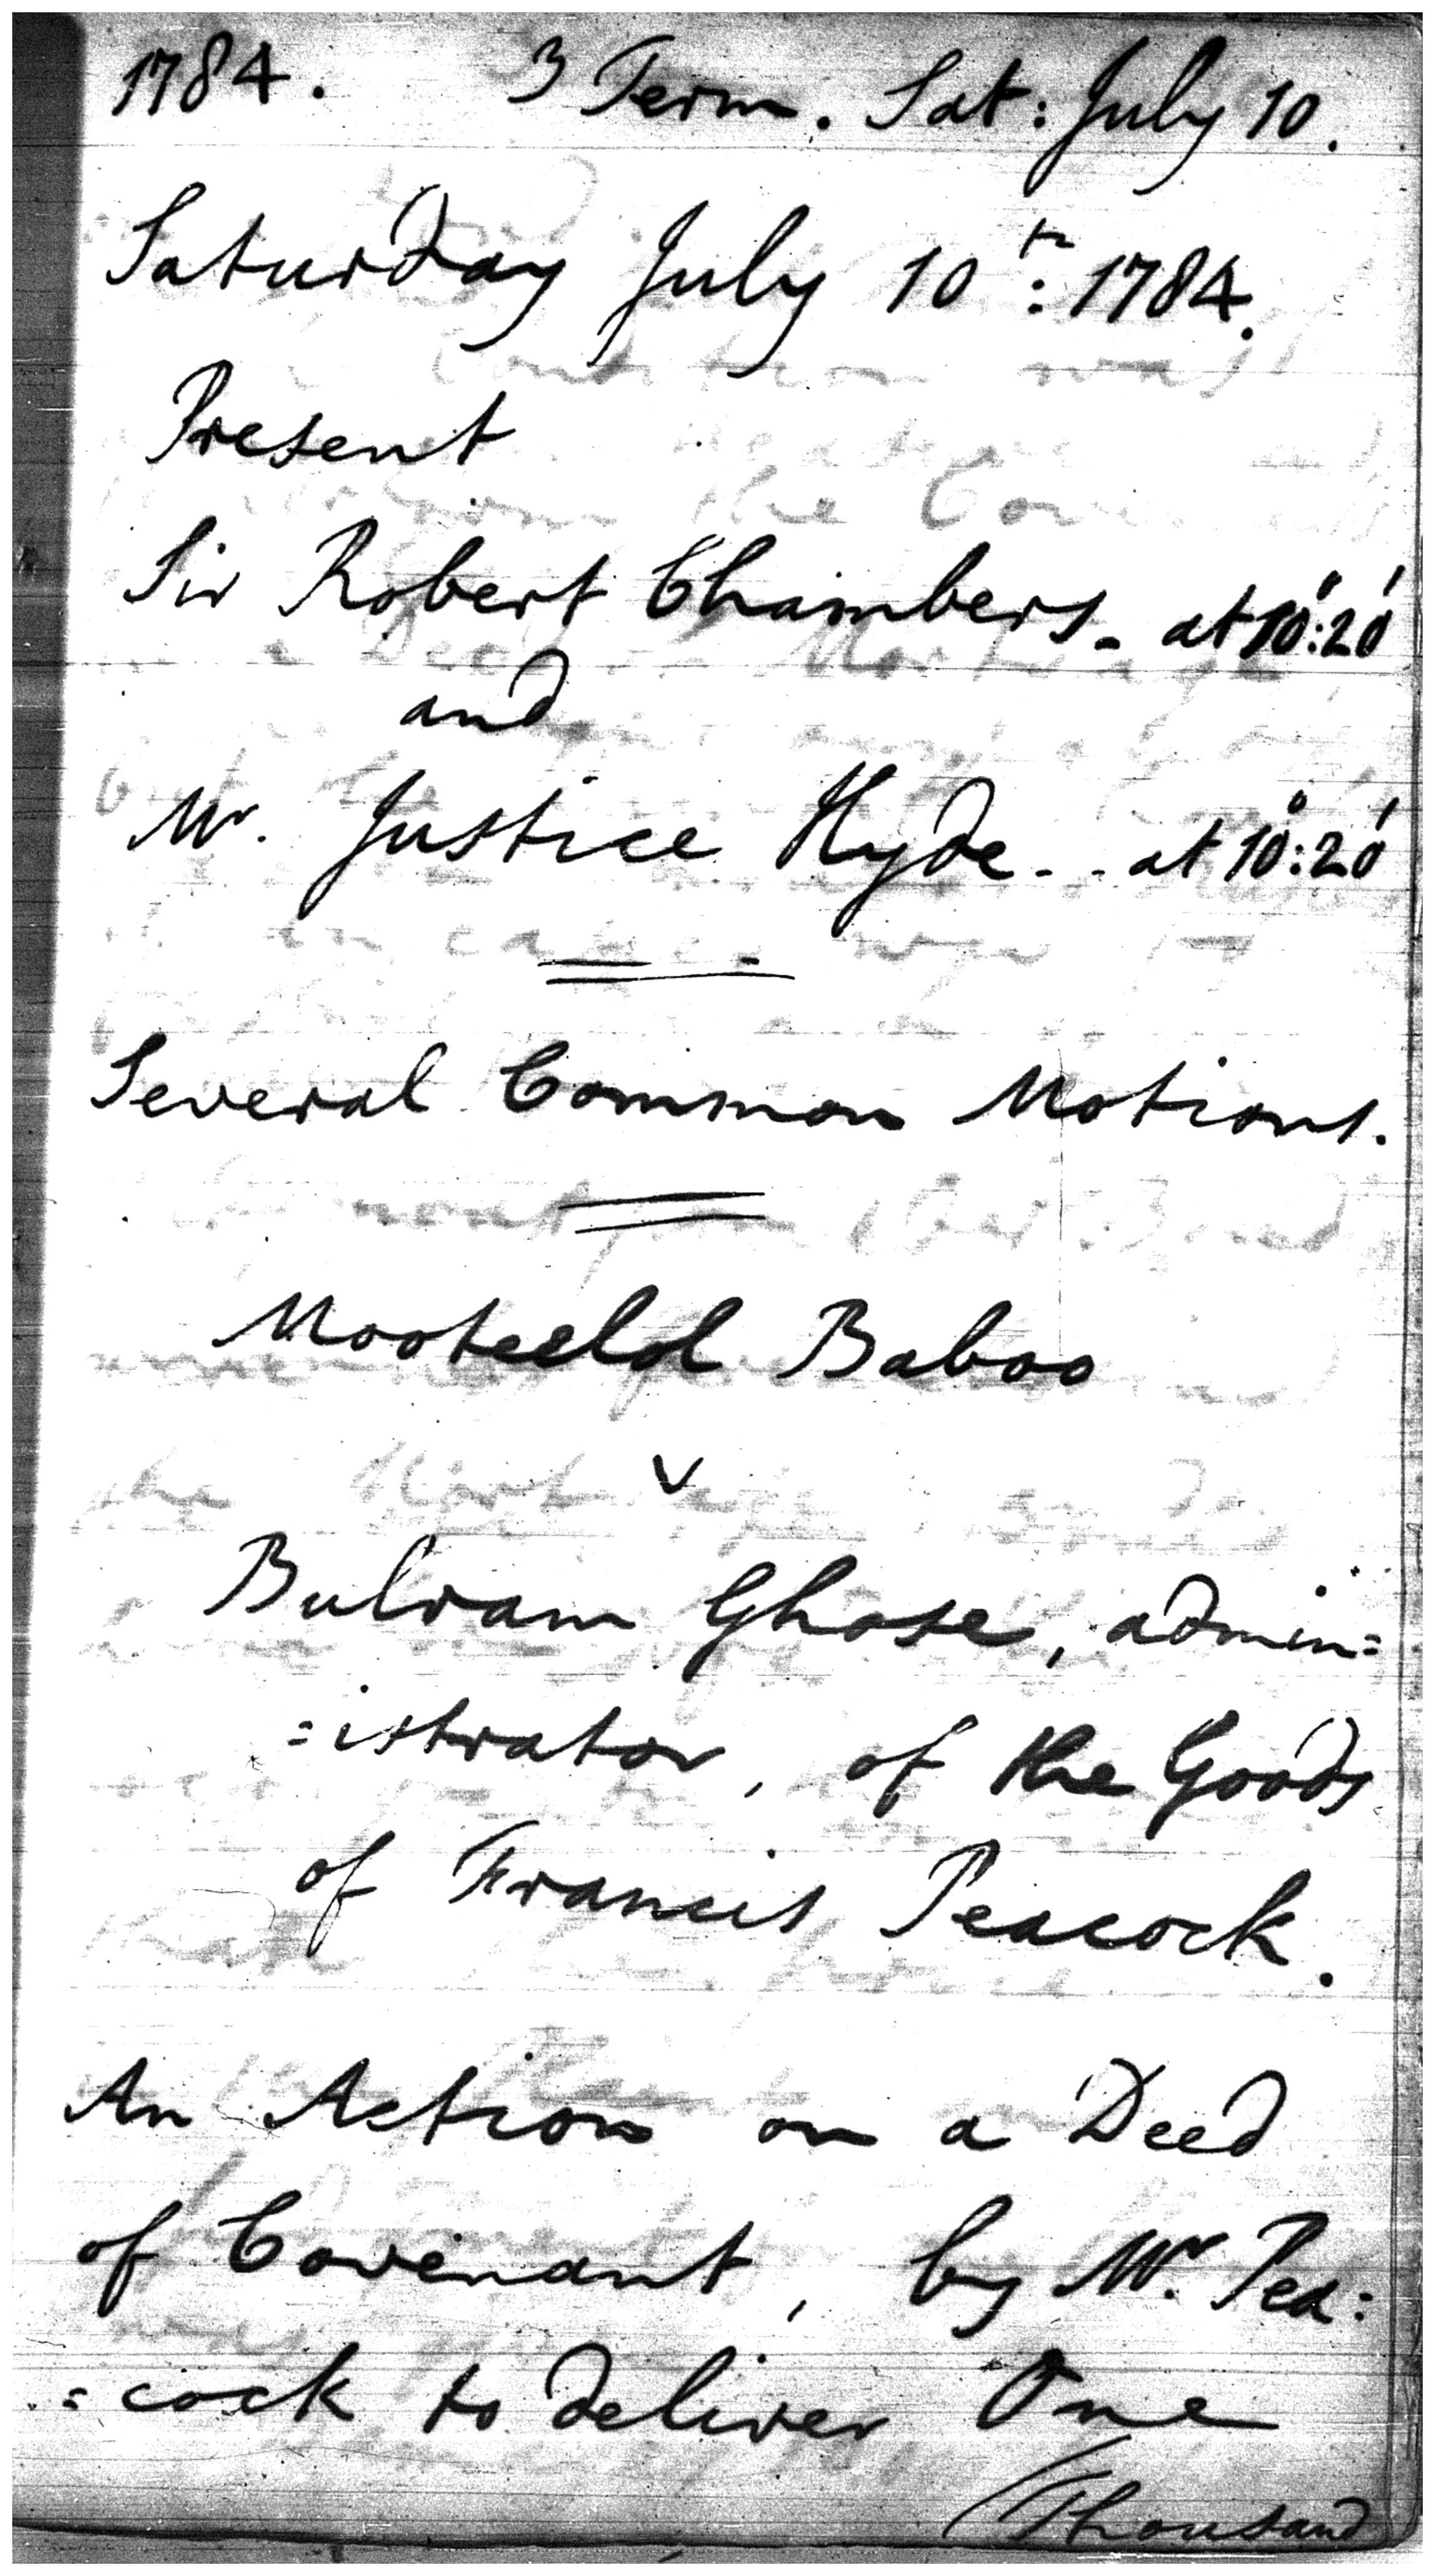 1784. 3 Term. Sat: July 10.
Saturday July 10th: 1784.
Present
Sir Robert Chambers - at 10°:20'
and
Mr. Justice Hyde - - at 10°:20'
Several Common Motions.
Baboo
v
Bulram Ghose, admin=
=istrator, of the Goods
of Francis Peacock.
An Action on a Deed
of Covenant, by Mr. Pea=
=cock to deliver One
Thousand